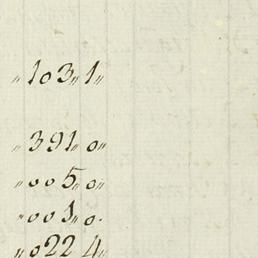 „ 103„ 1„
„ 391„ 0„
„ 005„ 0„
„ 001„ 0.
„ 022„ 4„